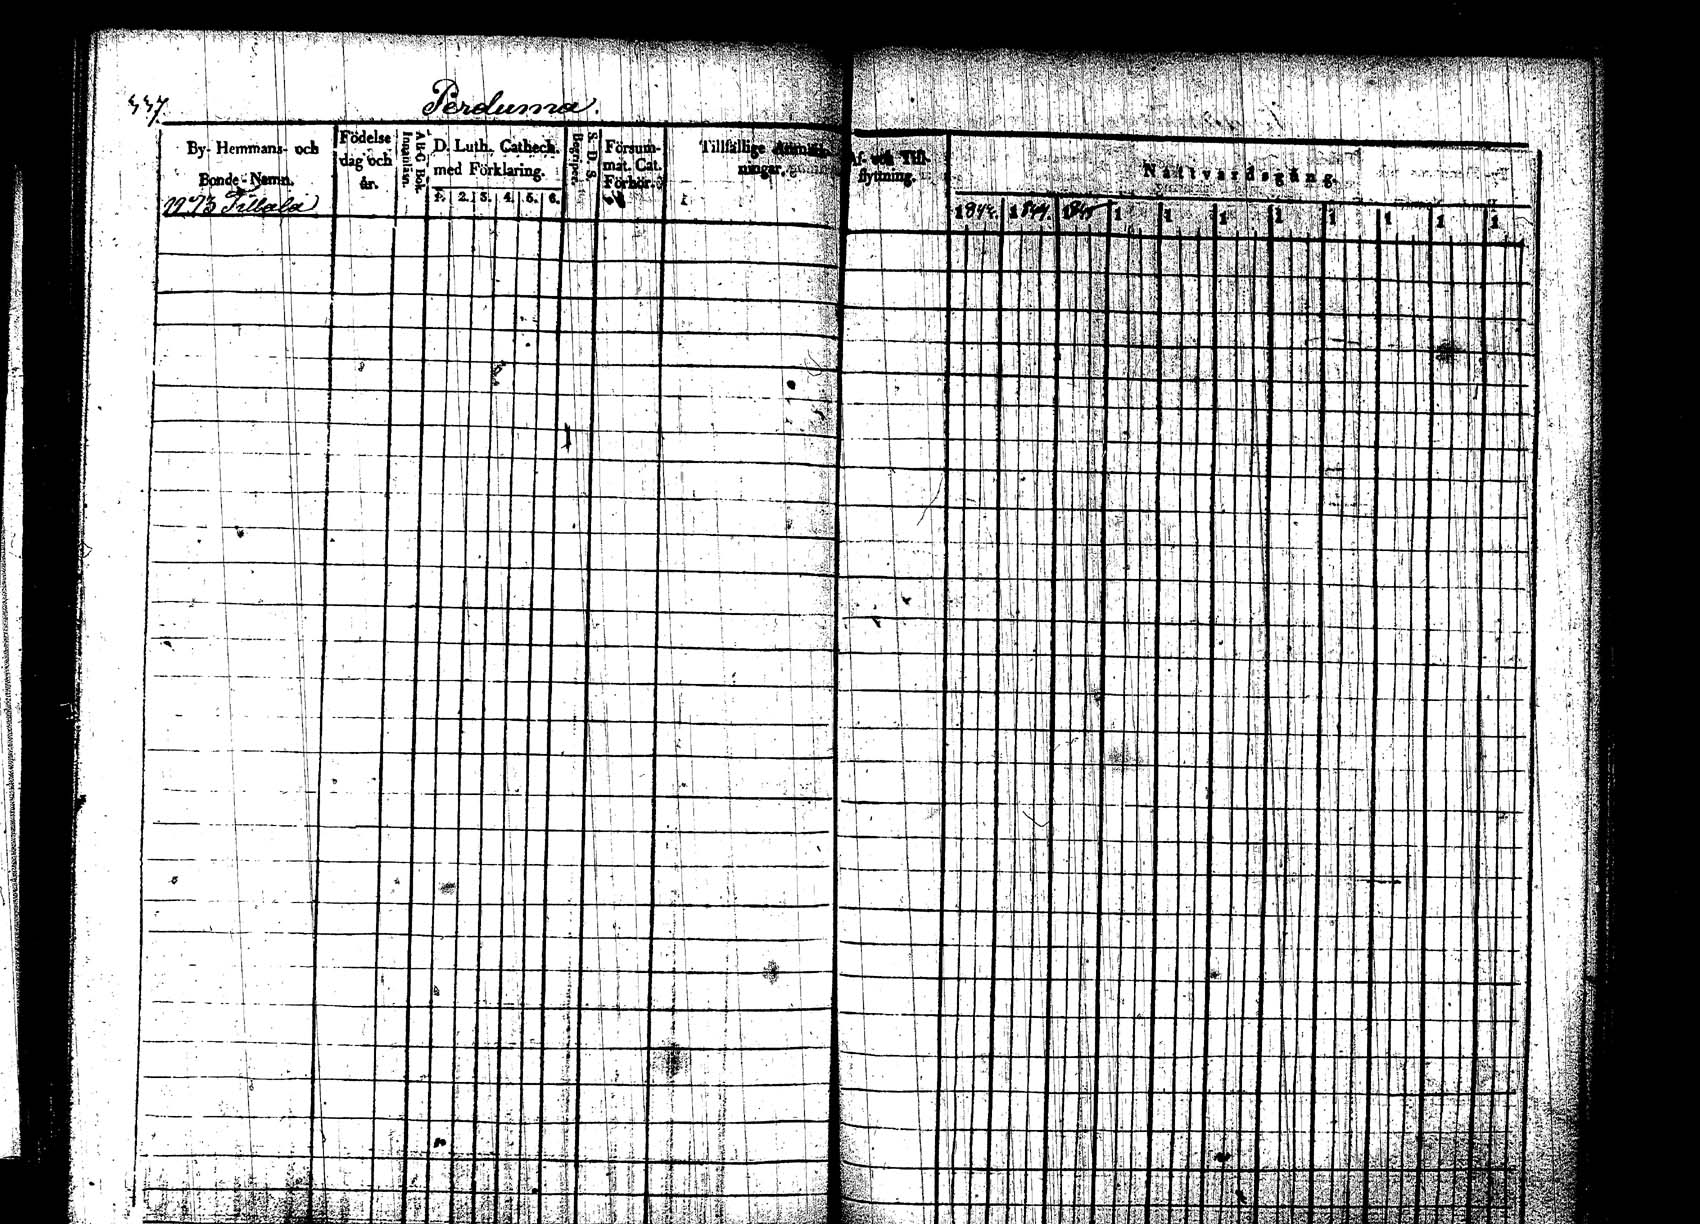 337.
Perduma.
By- Hemmans- och
Bonde-Namn.
N:o 3 Tillala
Födelse
dag och
år.
A B C Bok.
Innanläsn.
D. Luth. Cathech.
med Förklaring.
1. 2. 3. 4. 5. 6.
S. D. S.
Begriper.
Försum-
mat. Cat.
Förhör.
Tillfällige Anmärk-
ningar.
Af- och Till-
flyttning.
Nattvardsgång.
1843. 1844. 1845 1 1 1 1 1 1 1 1